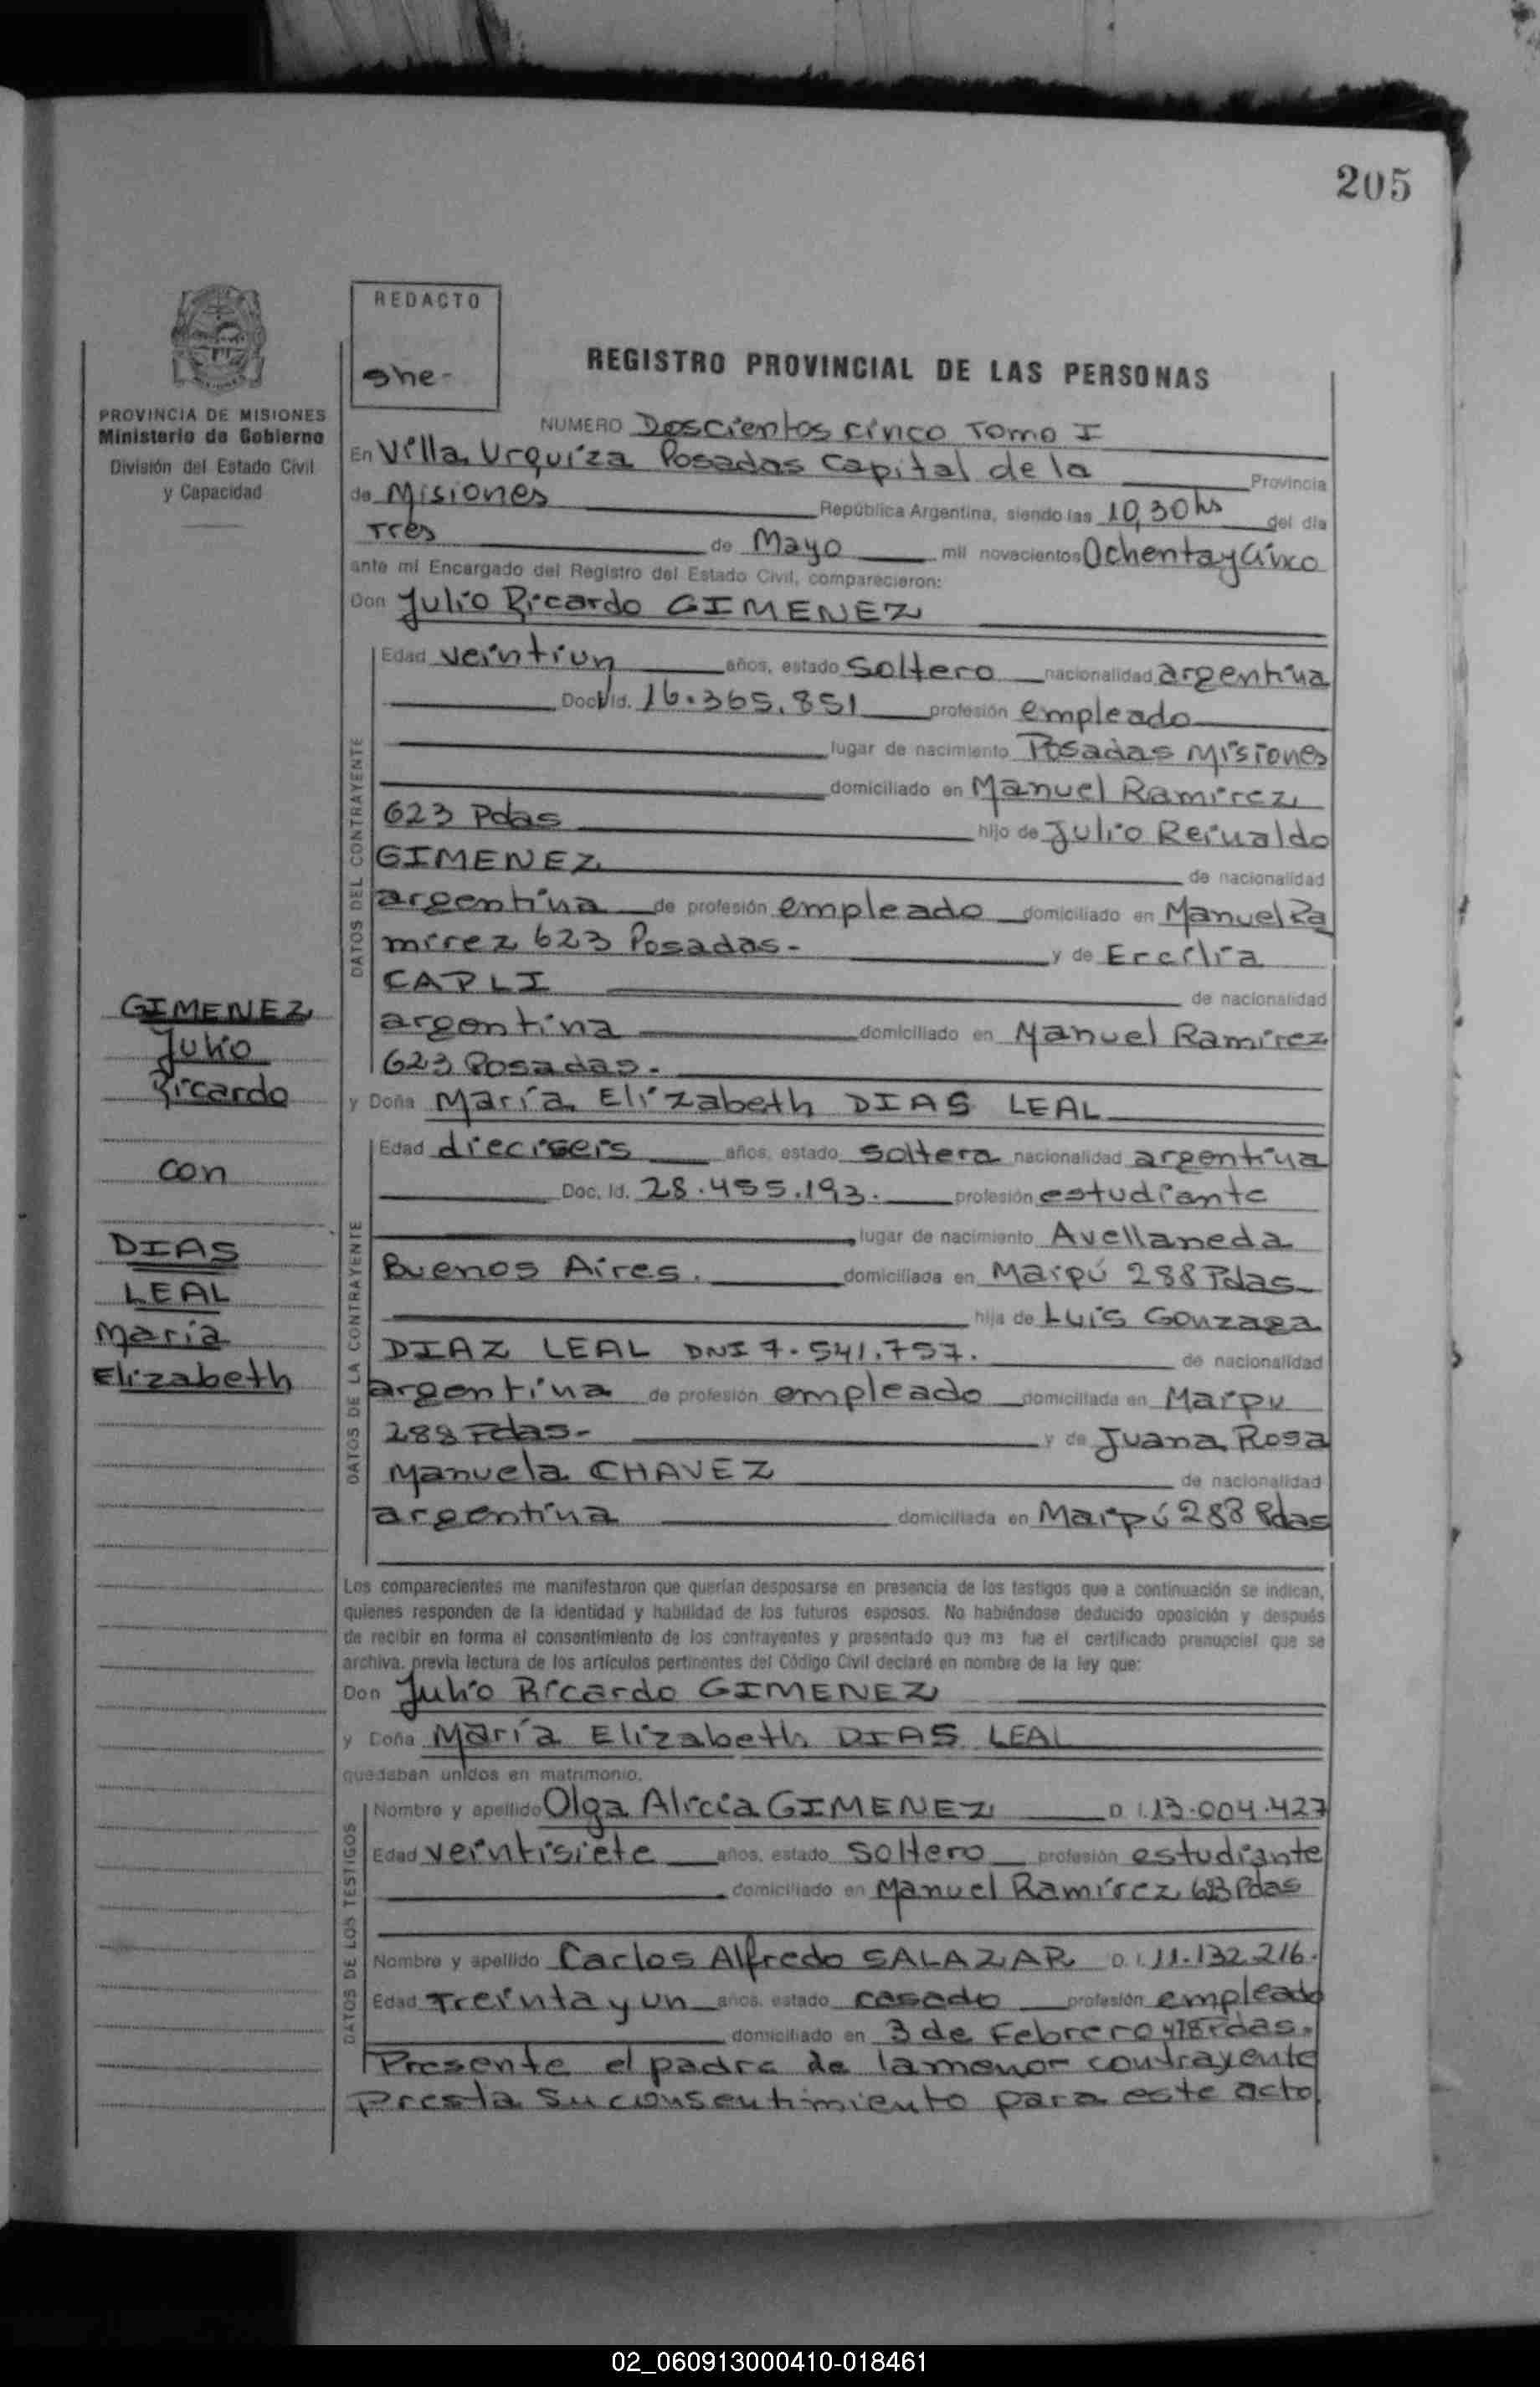 205
REDACTO
REGISTRO PROVINCIAL DE LAS PERSONAS
PROVINCIA DE MISIONES
Ministerio de Gobierno
División del Estado Civil
y Capacidad
NUMERO Doscientos cinco Tomo I
En Villa Urquiza Posadas Capital de la Provincia
de Misiones República Argentina, siendo las 10,30 hs del día
Tres de Mayo mil novecientos Ochenta y Cinco
ante mi Encargado del Registro del Estado Civil, comparecieron:
Don Julio Ricardo GIMENEZ
DATOS DEL CONTRAYENTE
Edad veintiun años, estado Soltero nacionalidad argentina
Doc. Id. 16.365.851 profesión empleado
lugar de nacimiento Posadas Misiones
domiciliado en Manuel Ramirez
623 Pdas hijo de Julio Reinaldo
GIMENEZ de nacionalidad
argentina de profesión empleado domiciliado en Manuel Ra
mirez 623 Posadas- y de Ercilia
CAPLI de nacionalidad
argentina domiciliado en Manuel Ramirez
623 Posadas.
GIMENEZ
Julio
Ricardo
con
DIAS
LEAL
Maria
Elizabeth
y Doña María Elizabeth DIAS LEAL
DATOS DE LA CONTRAYENTE
Edad dieciseis años, estado Soltera nacionalidad argentina
Doc. Id. 28.455.193. profesión estudiante
lugar de nacimiento Avellaneda
Buenos Aires. domiciliada en Maipú 288 Pdas
hija de Luis Gonzaga
DIAZ LEAL DNI 7.541.757. de nacionalidad
argentina de profesión empleado domiciliada en Maipu
288 Pdas- y de Juana Rosa
Manuela CHAVEZ de nacionalidad
argentina domiciliada en Maipú 288 Pdas
Los comparecientes me manifestaron que querían desposarse en presencia de los testigos que a continuación se indican,
quienes responden de la identidad y habilidad de los futuros esposos. No habiéndose deducido oposición y después
de recibir en forma el consentimiento de los contrayentes y presentado que me fue el certificado prenupcial que se
archiva, previa lectura de los artículos pertinentes del Código Civil declaré en nombre de la ley que:
Don Julio Ricardo GIMENEZ
y Doña María Elizabeth DIAS LEAL
quedaban unidos en matrimonio.
DATOS DE LOS TESTIGOS
Nombre y apellido Olga Alicia GIMENEZ D.I. 13.004.427
Edad veintisiete años, estado Soltero profesión estudiante
domiciliado en Manuel Ramírez 623 Pdas
Nombre y apellido Carlos Alfredo SALAZAR D.I. 11.132.216.
Edad Treinta y un años, estado casado profesión empleado
domiciliado en 3 de Febrero Pdas.
Presente el padre de la menor contrayente
Presta su consentimiento para este acto
02_060913000410-018461